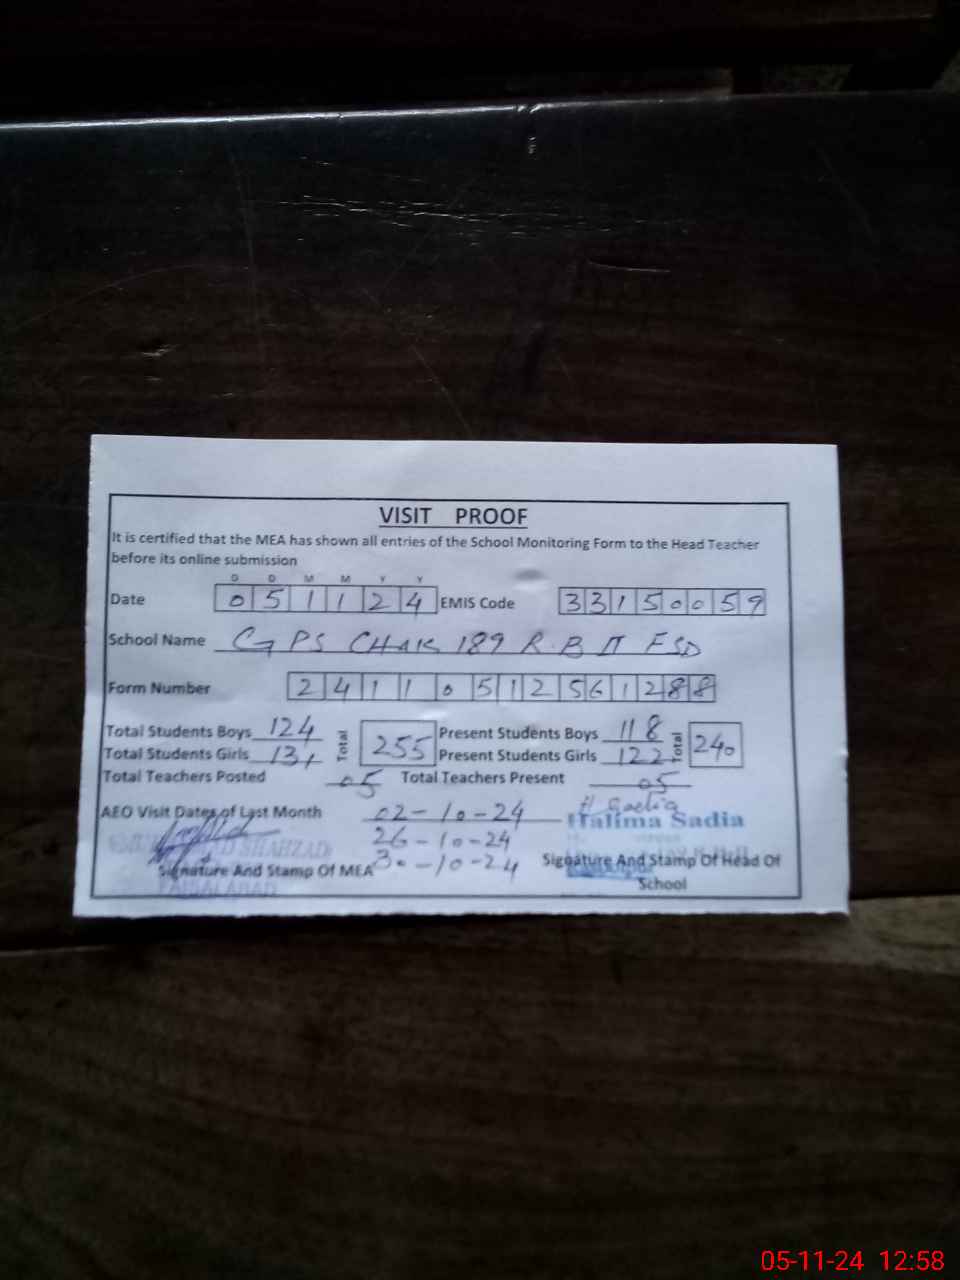 VISIT PROOF
It is certified that the MEA has shown all entries of the School Monitoring Form to the Head Teacher
before its online submission
D D M M Y Y
Date 0 5 1 1 2 4 EMIS Code 3 3 1 5 0 0 5 9
School Name GPS CHAK 189 R.B II FSD
Form Number 2 4 1 1 0 5 1 2 5 6 1 2 8 8
Total Students Boys 124 Total 255 Present Students Boys 118 Total 240
Total Students Girls 131 Present Students Girls 122
Total Teachers Posted 05 Total Teachers Present 05
AEO Visit Dates of Last Month 02-10-24 H. Sadia
Halima Sadia
26-10-24
SHAHZAD
30-10-24
Signature And Stamp Of MEA Signature And Stamp Of Head Of
School
FAISALABAD
05-11-24 12:58